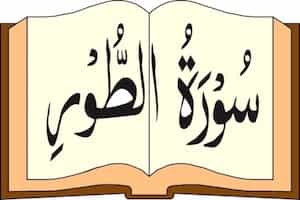 سُوْرَةُ الطُّوْرِ